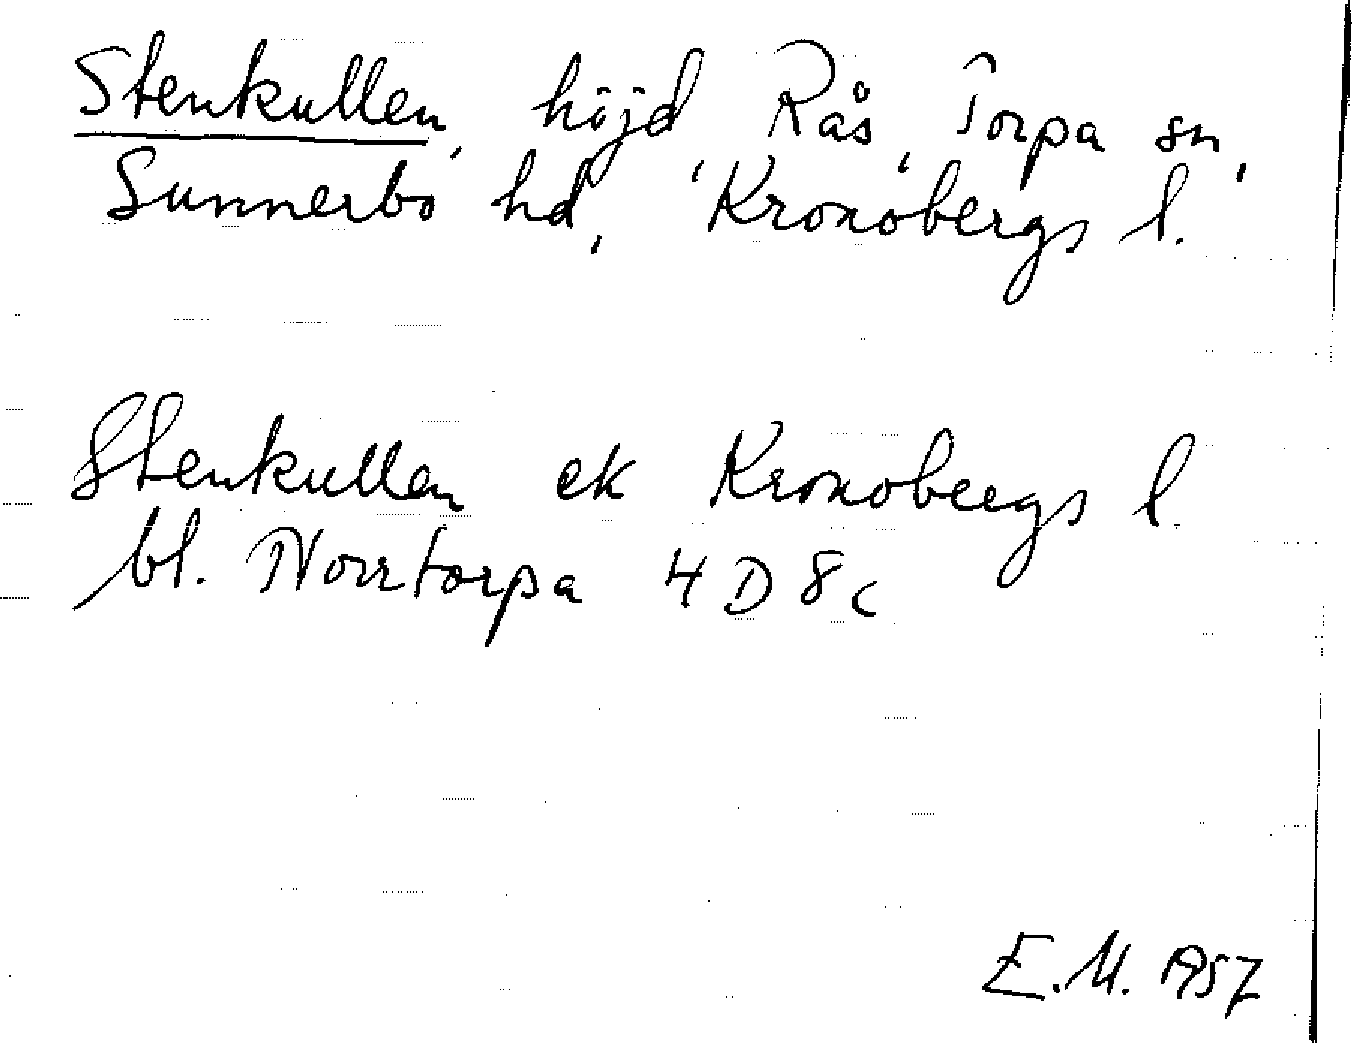 Stenkullen, höjd, Rås, Torpa sn,
Sunnerbo hd, Kronobergs l.
Stenkullen ek Kronobergs l.
bl. Norrtorpa 4D8c
E.M. 1957